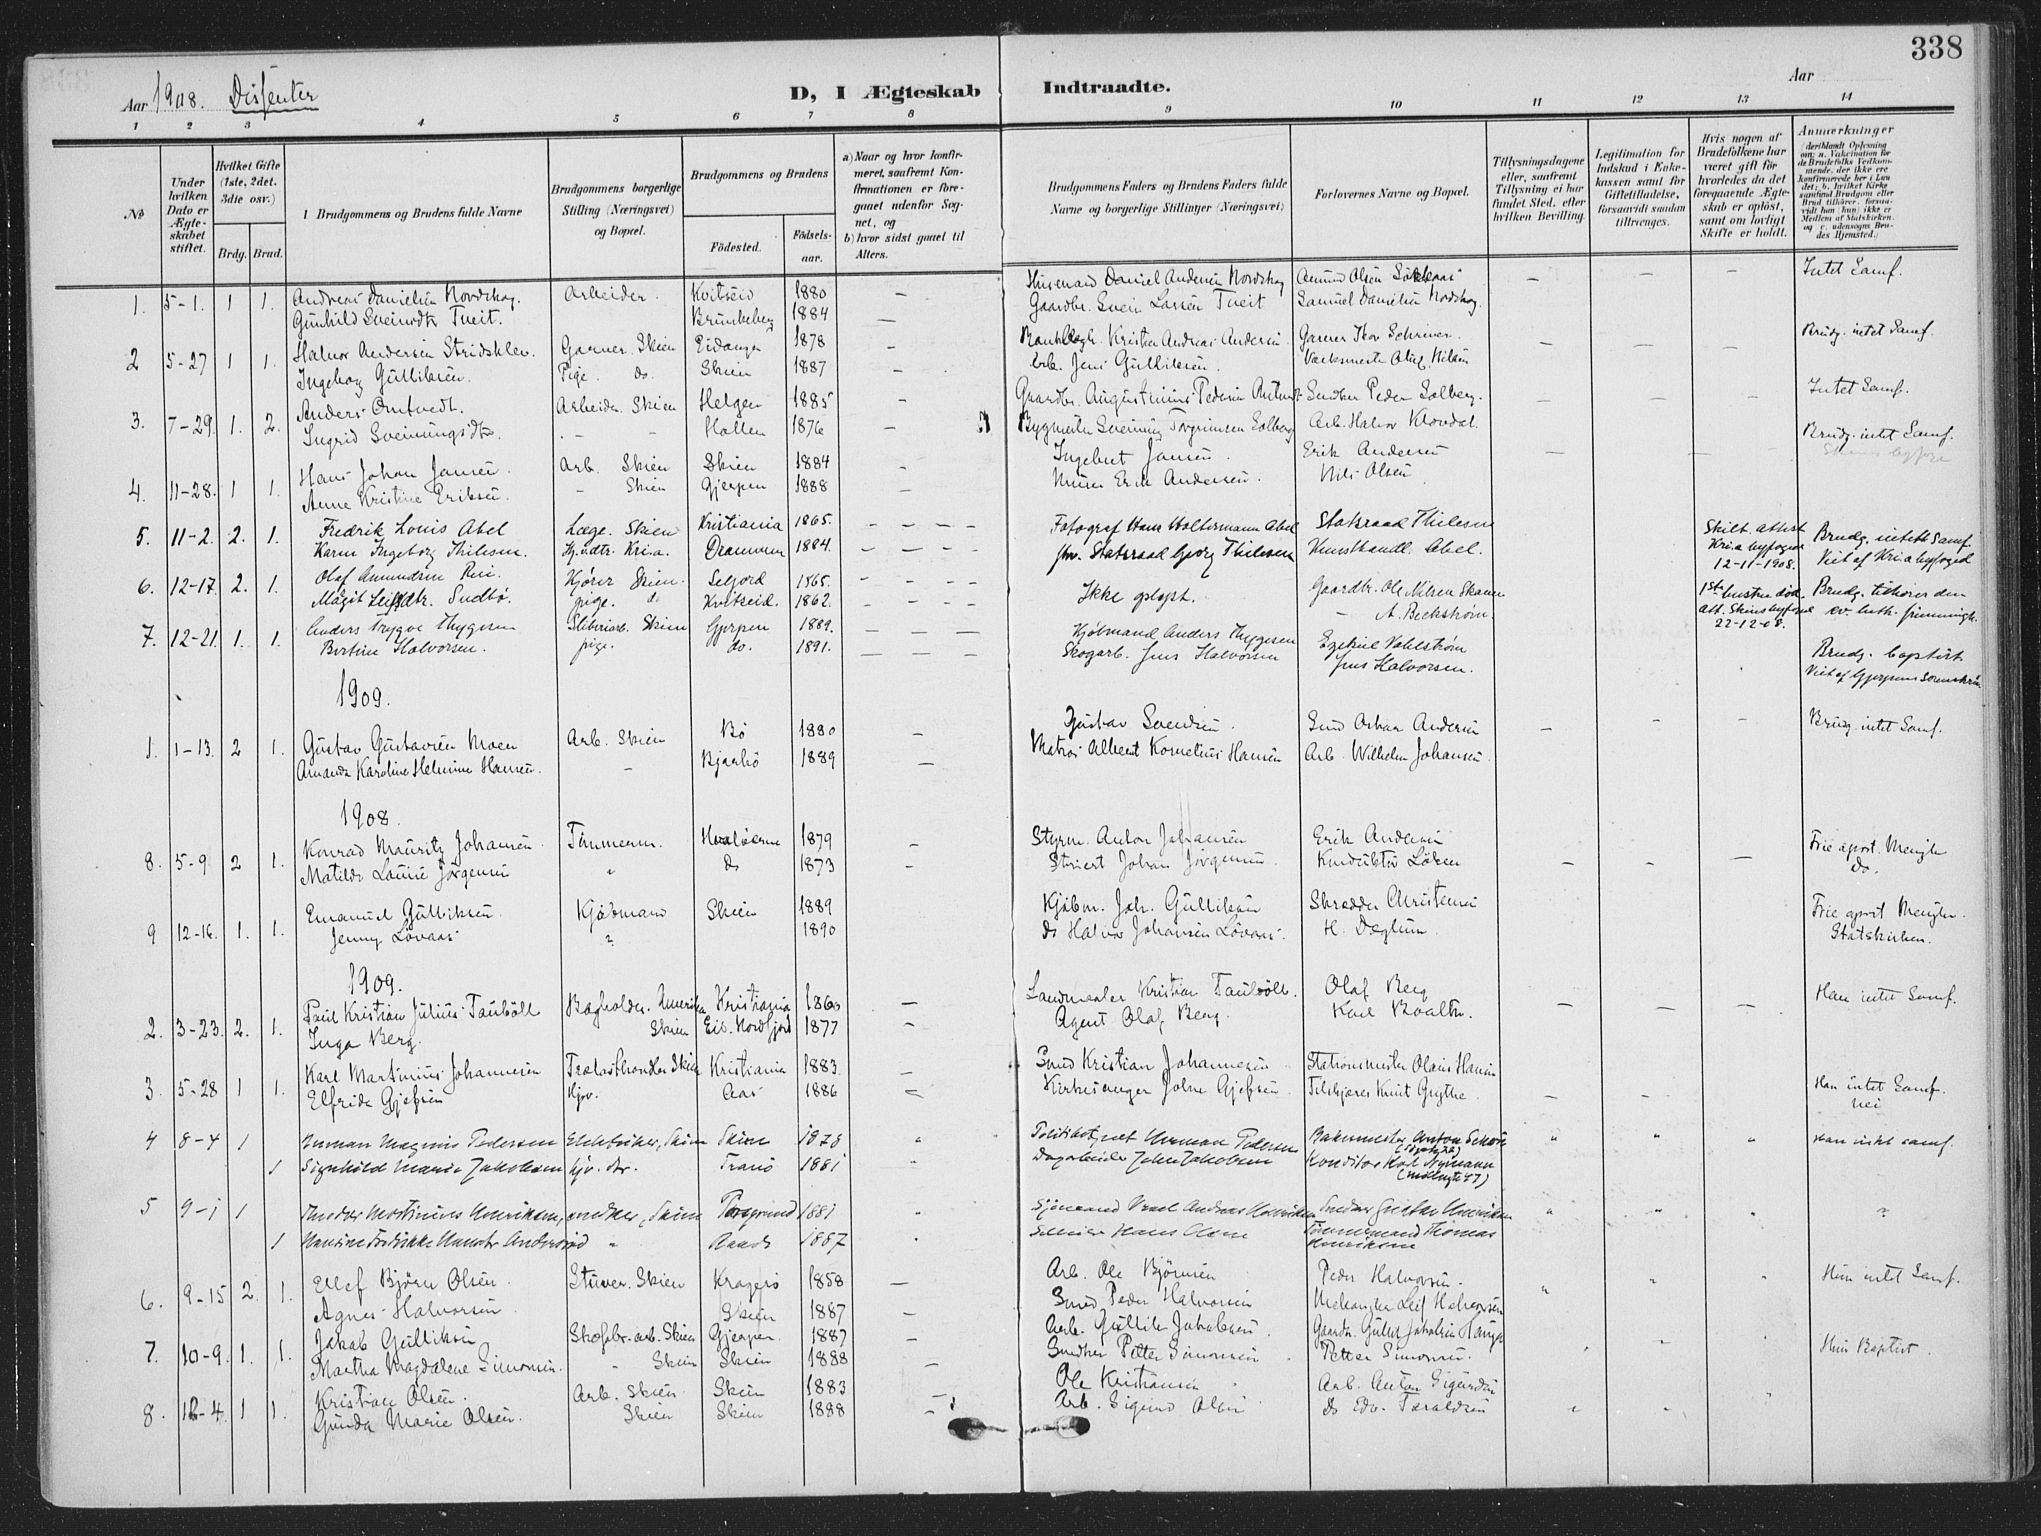 338
Aar 1908. Dissenter
D, I Ægteskab Indtraadte.
Aar
1 2 3 4 5 6 7 8 9 10 11 12 13 14
No
Under hvilken Dato er Ægteskabet stiftet.
Hvilket Gifte (1ste, 2det, 3die osv.)
Brdg. Brud.
Brudgommens og Brudens fulde Navne
Brudgommens borgerlige Stilling (Næringsvei) og Bopæl.
Brudgommens og Brudens
Födested. Födsels-aar.
a) Naar og hvor konfirmeret, saafremt Konfirmationen er foregaaet udenfor Sognet, og
b) hvor sidst gaaet til Alters.
Brudgommens Faders og Brudens Faders fulde Navne og borgerlige Stillinger (Næringsvei)
Forlovernes Navne og Bopæl.
Tillysningsdagene eller, saafremt Tillysning ei har fundet Sted, efter hvilken Bevilling.
Legitimation for Indskud i Enkekassen samt for Giftetilladelse, forsaavidt saadan tiltrænges.
Hvis nogen af Brudefolkene har været gift før hvorledes da det foregaaende Ægteskab er opløst, samt om lovligt Skifte er holdt.
Anmærkninger (deriblandt Oplysning om: a. Vakcination for de Brudefolks Vedkommende, der ikke ere konfirmerede her i Landet; b. hvilket Kirkesamfund Brudgom eller Brud tilhører, forsaavidt han (hun) ikke er Medlem af Statskirken, og c. udensogns Brudes Hjemsted.)
1. 5-1. 1 1. Andreas Danielsen Nordskog. Arbeider. Kvitseid 1880 – Husmand Daniel Andersen Nordskog Amund Olsen – – – Intet Samf.
Gunhild Sveinsdtr Tveit. Brunkeberg 1884 – Gaardbr. Svein Larsen Tveit Samuel Danielsen Nordskog.
2 5-27 1 1. Halvor Andersen Stridsklev. Garver. Skien Eidanger 1878 – Kristen Andreas Andersen Garver Thor Schriver. – – – Brudg. intet Samf.
Ingeborg Gulliksen. Pige. do. Skien 1887 – Arb. Jens Gulliksen. Værksmester Oluf Nilsen
3. 7-29. 1. 2. Anders Omtvedt. Arbeider. Skien Helgen 1885 – Gaardbr. Augustinius Pedersen Smedker Peder Solberg. – – – Intet Samf.
Ingrid Sveinungsdtr. – – Hollen 1876 – Bygmester Sveinung Torgrimsen Solberg Arb. Halvor Klovdal.
4. 11-28. 1 1. Hans Johan Jansen. Arb. Skien Skien 1884 – Ingebret Jansen. Erik Andersen – – – Brudg. intet Samf.
Anne Kristine Eriksen. – Skien Gjerpen 1888 – Murer Erik Andersen. Nils Olsen
5. 11-2. 2. 1. Fredrik Louis Abel Læge. Skien Kristiania 1865. – – – – Fotograf Hans Holtermann Abel Statsraad Thilesen Skilt attest Kr.a byfoged 12-11-1908. Brudg. intet Samf.
Karen Ingeborg Thilesen. Hj.vdtr. Kr.a. Drammen 1884. – – – – fhv. Statsraad Georg Thilesen Kunsthandl. Abel. Viet af Kr.a byfoged
6. 12-17. 2. 1. Olaf Amundsen Rui. Kjører Skien. Seljord 1865. – – – – Ikke oplyst. Gaardbr. Ole Nilsen 1ste hustru død Brudg. tilhører den
Magit Leifsdtr. Sudbø. pige. do Kvitseid. 1862. – – – – A. Beckstrøm. att. Skiens byfoged 22-12-08. ev. luth. frimenigh.
7. 12-21. 1. 1. Anders Trygve Thygesen Sliberiarb. Skien Gjerpen 1889. – – – Kjøbmand Anders Thygesen Ezekiel Vahlstrøm Brudg. baptist
Bertine Halvorsen. pige. do. 1891. – – – Skogarb. Jens Halvorsen Jens Halvorsen. Viet af Gjerpens Sorenskriv
1909.
1. 1-13. 2 1. Gustav Gustavsen Moen Arb. Skien Bø 1880 – Gustav Svendsen. Smed Oskar Andersen – – – Brudg. intet Samf.
Amanda Karoline Helmine Hansen. – 1889 – Matros Albert Kornelius Hansen Arb. Wilhelm Johansen.
1908.
8. 5-9. 2 1. Konrad Mauritz Johansen Tømmerm. Hvaløerne 1879 – Styrm. Anton Johansen Erik Andersen – – – Frie apost. Menigh.
Matilde Lovise Jörgensen " do 1873 – Johan Jörgensen Konduktör do.
9 12-16. 1. 1. Emanuel Gulliksen. Kjøbmand Skien 1889 Kjøbm. Joh. Gulliksen Skrædder Christensen Frie apost. Menigh.
Jenny Lövaas " 1890 do Halvor Johansen Lövaas. H. Dæglum. Statskirken.
1909.
2. 3-23. 2. 1. Paul Kristian Julius Taubøll Bogholder. Amerika Kristiania – Landmaaler Kristian Taubøll. Olaf Berg – – – Han intet Samf.
Inga Berg. Skien Eid. Nordfjord 1877 – Agent Olaf Berg. Karl
3. 5-28 1 1. Karl Martinius Johannesen Trælasthandler Skien Kristiania 1883. – Smed Kristian Johannesen Stationsmester Olaus Hansen – – Han intet Samf.
Elfrida Gjefsen Hjv. Aas 1886 – Kirkesanger Johs Gjefsen. Knut Grythe. nei
4 8-4 1 Herman Magnus Pedersen Elektriker, Skien Skien 1878 " Politibetjent Herman Pedersen Bakermester Anton " " " Han intet samf.
1 Signhild Marie Jakobsen hjv. dtr. Tranö 1881 " Dagarbeider John Jakobsen Konditor Karl Nymann
5 9-1 1 Theodor Martinius Henriksen, snedker, Skien Porsgrund 1881 " Sjömand Andreas Henriksen Snedker Gustav Henriksen " " " "
1 Andersrød " Raade 1887 " Hans Olsen Tömmermand Thomas Henriksen
6. 9-15 2. 1. Ellef Björn Olsen. Stuver. Skien Kragerö 1858 – Arb. Ole Björnsen Peder Halvorsen. " " " Hun intet Samf.
Agnes Halvorsen Skien 1887 – Smed Peder Halvorsen Leif Halvorsen
7. 10-9. 1. 1. Jakob Gulliksen Skofabr.-arb. Skien Gjerpen 1887 – Arb. Gullik Jakobsen. Gaardbr. Gullik Jakobsen " " " Hun Baptist.
Martha Magdalene Simonsen. " Skien Skien 1888 – Snedker Petter Simonsen Petter Simonsen.
8. 12-4. 1 1. Kristian Olsen. Arb. Skien Skien 1883 – Ole Kristiansen Arb. Anton Sigurdsen
Gunda Marie Olsen. Skien Skien 1888 – Arb. Sigurd Olsen do Edv. Taraldsen " " "